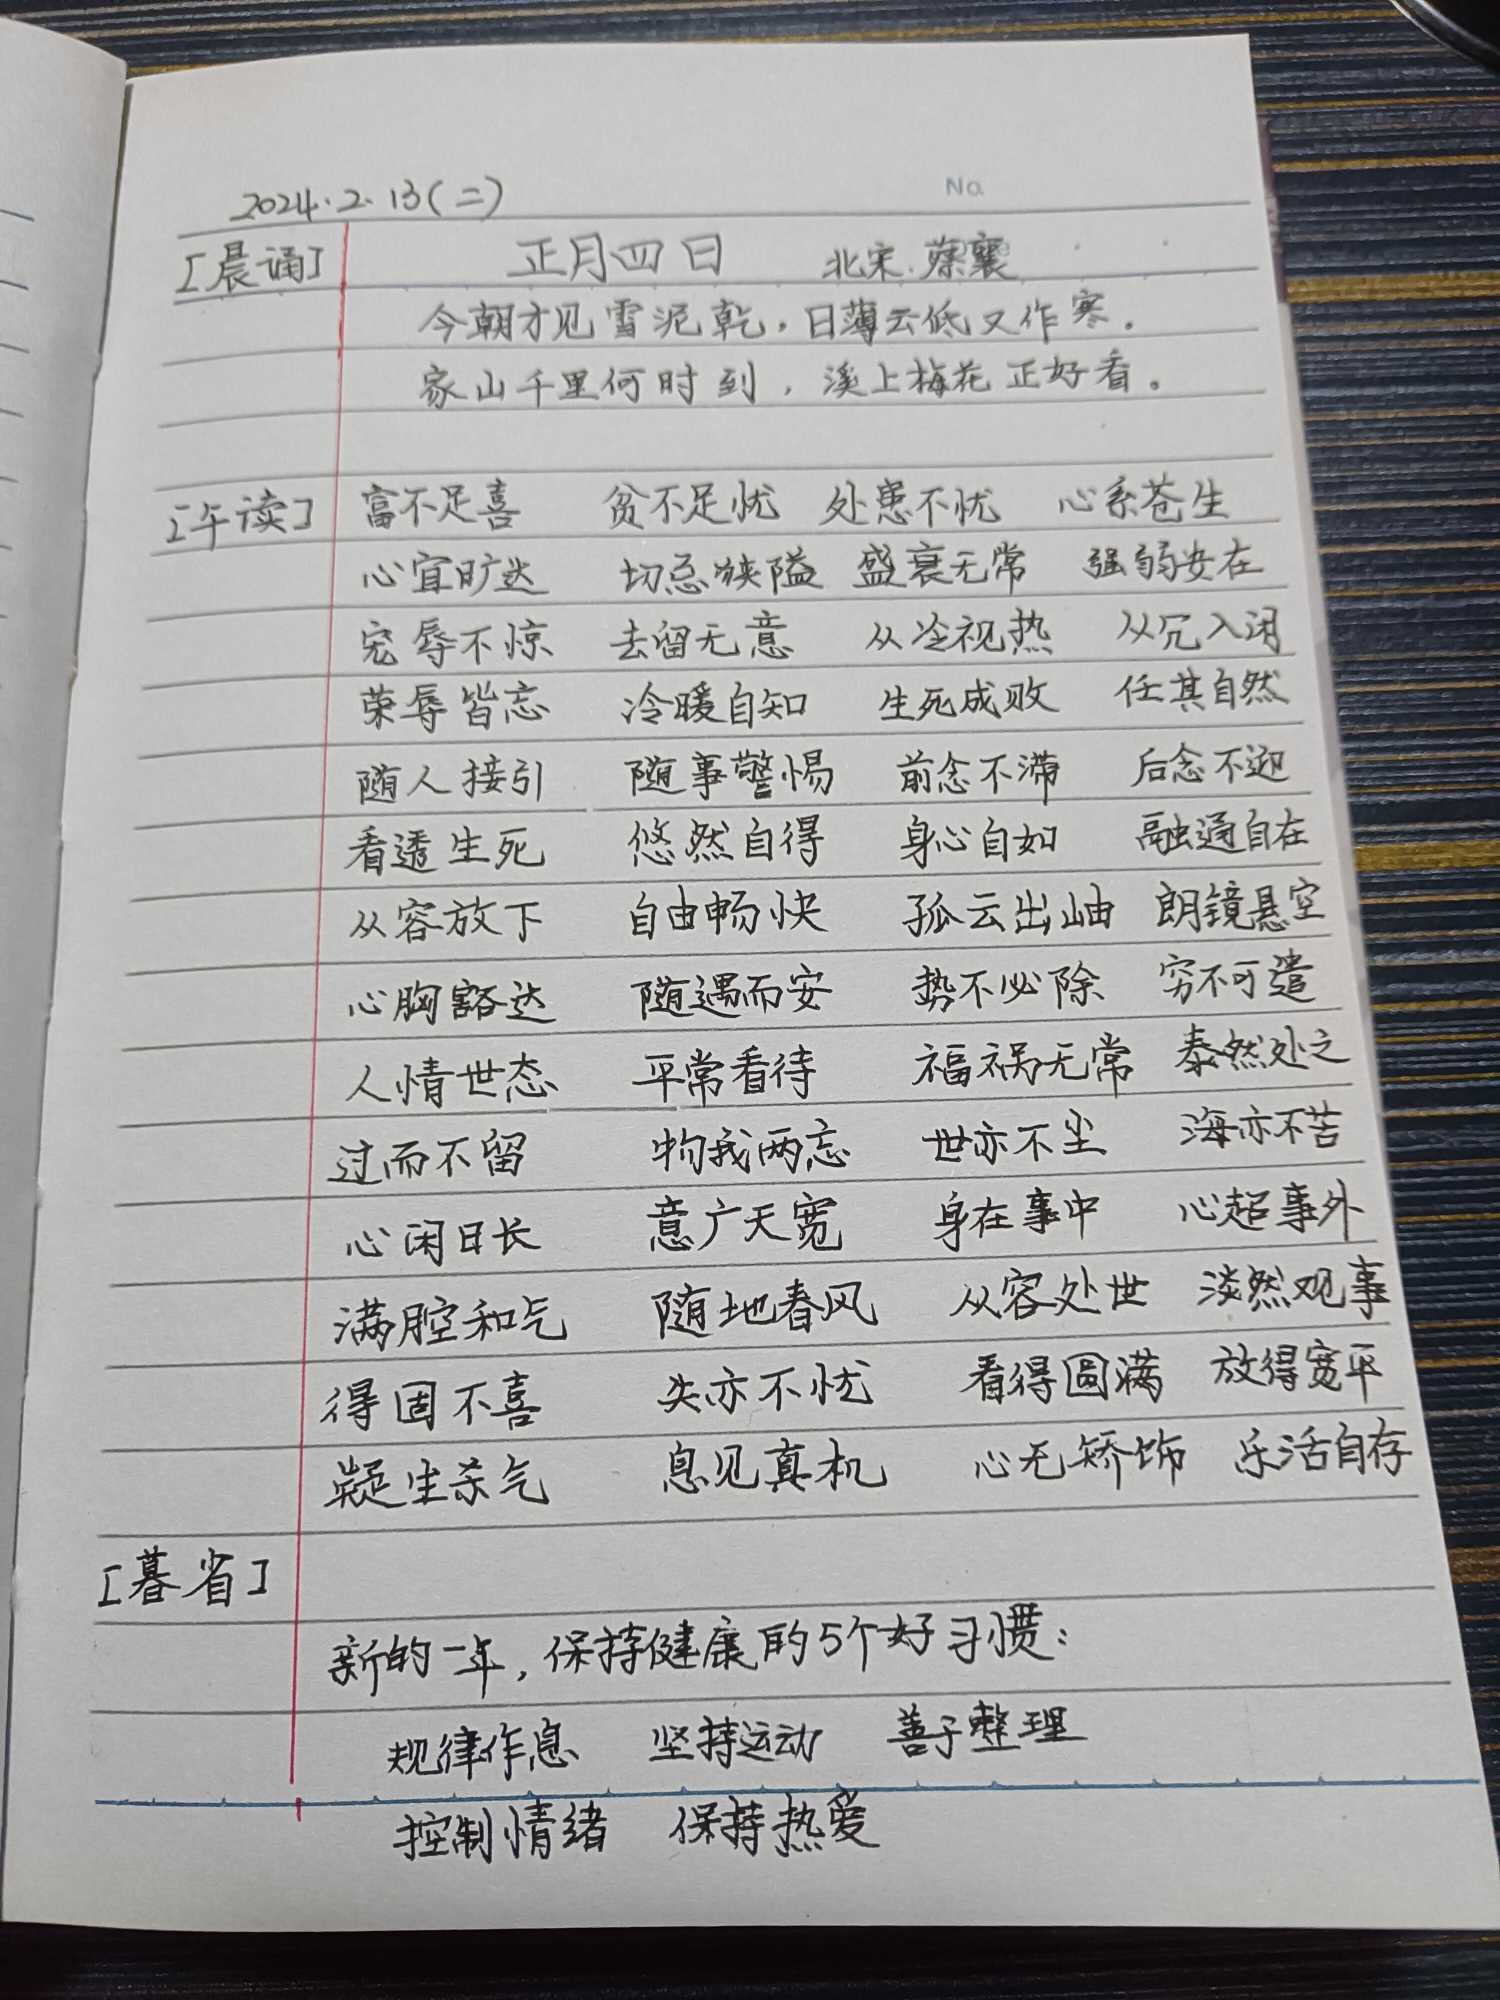 2024.2.13(二)
No.
[晨诵] 正月四日 北宋.蔡襄
今朝才见雪泥乾，日薄云低又作寒。
家山千里何时到，溪上梅花正好看。
[午读] 富不足喜 贫不足忧 处患不忧 心系苍生
心宜旷达 切忌狭隘 盛衰无常 强弱安在
宠辱不惊 去留无意 从冷视热 从冗入闲
荣辱皆忘 冷暖自知 生死成败 任其自然
随人接引 随事警惕 前念不滞 后念不迎
看透生死 悠然自得 身心自如 融通自在
从容放下 自由畅快 孤云出岫 朗镜悬空
心胸豁达 随遇而安 势不必除 穷不可遣
人情世态 平常看待 福祸无常 泰然处之
过而不留 物我两忘 世亦不尘 海亦不苦
心闲日长 意广天宽 身在事中 心超事外
满腔和气 随地春风 从容处世 淡然观事
得固不喜 失亦不忧 看得圆满 放得宽平
凝生杀气 息见真机 心无矫饰 乐活自存
[暮省]
新的一年，保持健康的5个好习惯：
规律作息 坚持运动 善于整理
控制情绪 保持热爱